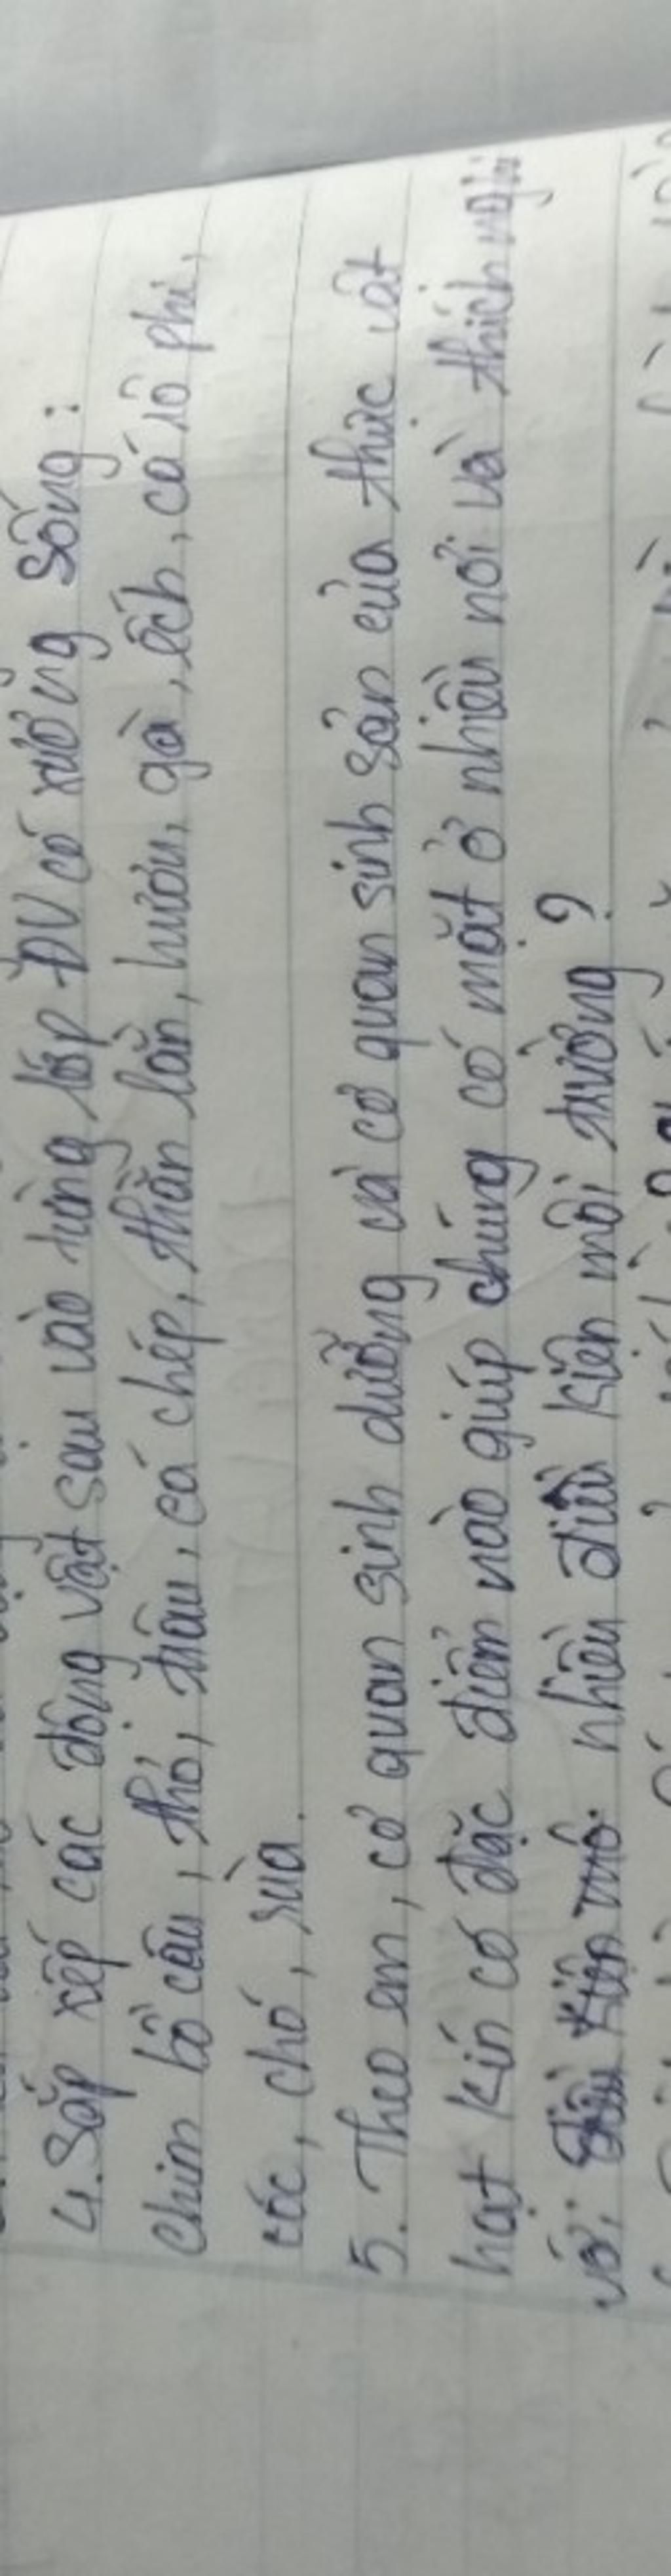 4. Sắp xếp các động vật sau vào từng lớp ĐV có xương sống:
chim bồ câu, thỏ, trâu, cá chép, thằn lằn, hươu, gà, ếch, cá rô phi,
cóc, chó, rùa.
5. Theo em, cơ quan sinh dưỡng và cơ quan sinh sản của thực vật
hạt kín có đặc điểm nào giúp chúng có mặt ở nhiều nơi và thích nghi
với nhiều điều kiện môi trường?